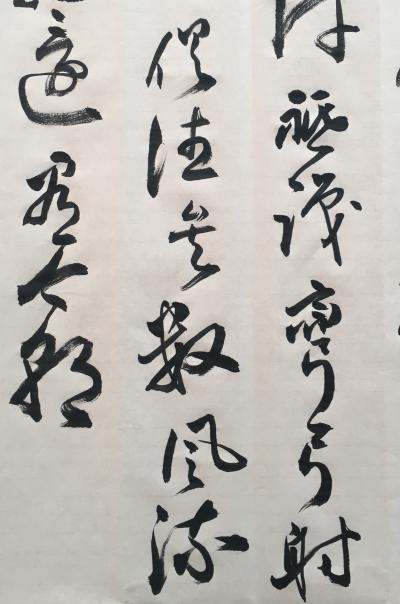 汗祗識彎弓射
俱往矣數風流
還看今朝